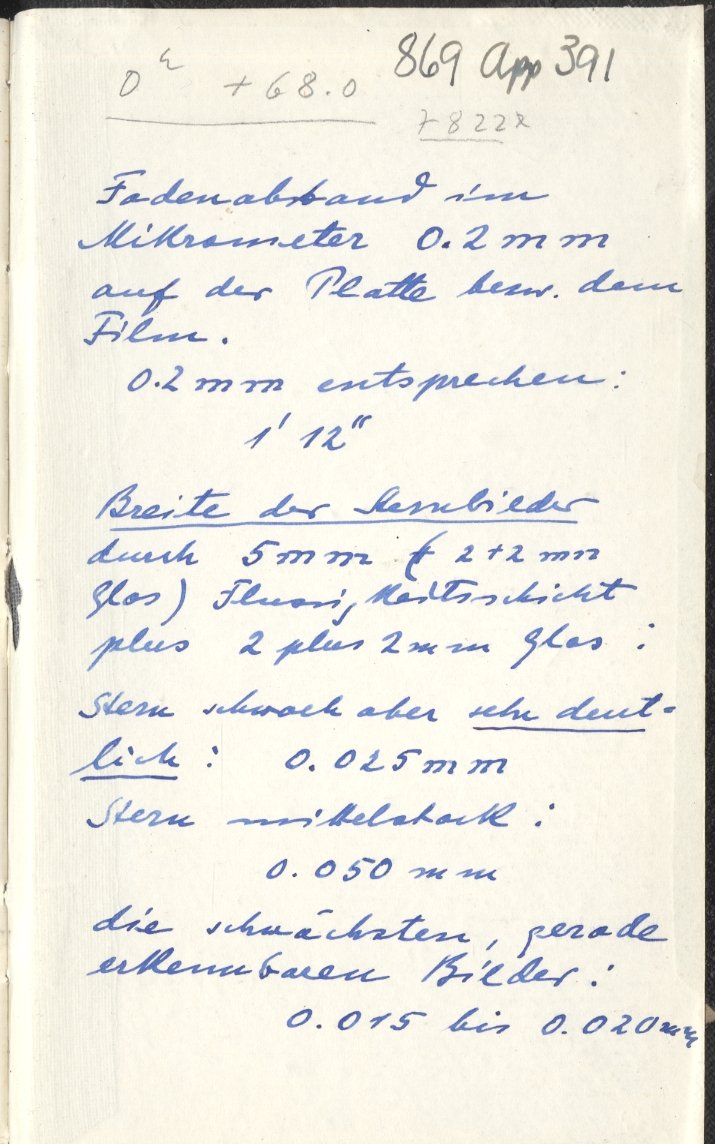 0h +68.0 869 App 391
7822x
Fadenabstand im
Mikrometer 0.2 mm
auf der Platte bezw. dem
Film.
0.2 mm entsprechen:
1' 12"
Breite der Sternbilder
durch 5 mm (+ 2+2 mm
Glas) Flüssigkeitsschicht
plus 2 plus 2 mm Glas:
Stern schwach aber sehr deut-
lich: 0.025 mm
Stern mittelstark:
0.050 mm
die schwächsten, gerade
erkennbaren Bilder:
0.015 bis 0.020 mm